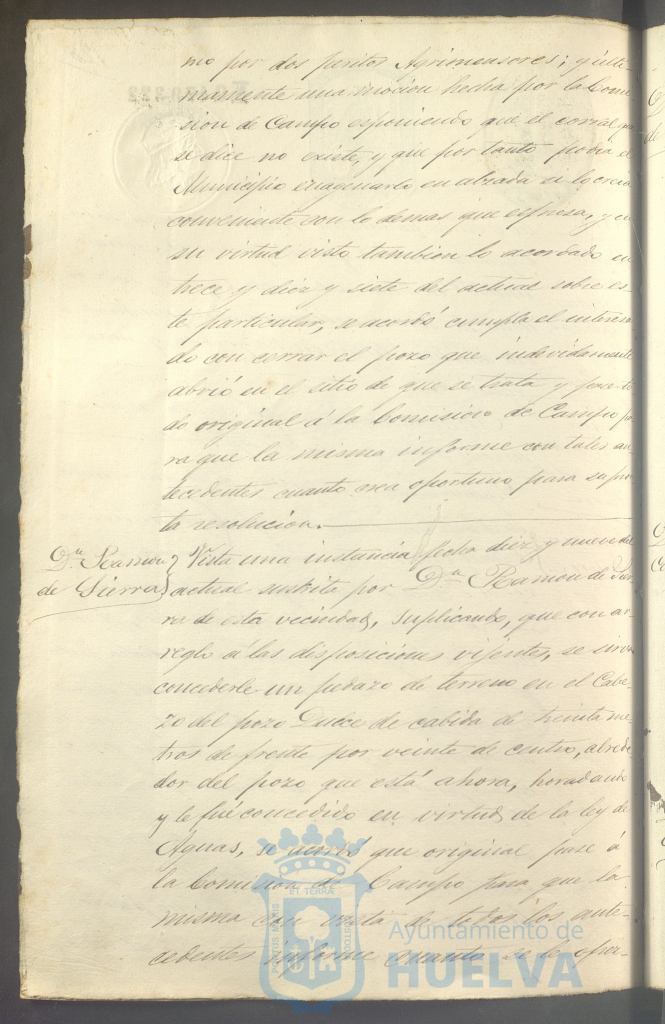 mo por dos peritos Agrimensores; y ulti-
mamente una mocion hecha por la Comi
sion de Campo esponiendo que el corral q
se dice no existe, y que por tanto podia el
Municipio enagenarlo en alzada si lo creia
conveniente con lo demas que espresa, y en
su virtud visto tambien lo acordado en
trece y diez y siete del actual sobre es-
te particular, se acordó cumpla el interesa
do con cerrar el pozo que indevidamente
abrió en el sitio de que se trata y
do original á la Comision de Campo pa
ra que la misma informe con tales an
tecedentes cuanto crea oportuno para su
ta resolucion.
Dn. Ramon
de Sierra
Vista una instancia fecha diez y nueve del
actual suscrita por Dn. Ramon de Sier
ra de esta vecindad, suplicando, que con ar
reglo á las disposiciones vijentes, se sirva
concederle un pedazo de terreno en el Cabe-
zo del pozo Dulce de cabida de treinta me
tros de frente por veinte de centro, alrede
dor del pozo que está ahora, horadando
y le fué concedido en virtud de la ley de
Aguas, se acordó que original pase á
la Comision de Campo para que la
misma con vista de todos los ante-
cedentes informe cuanto se le ofrez-
PORTUS MARIS
ET TERRAE
CUSTODIA
Ayuntamiento de
HUELVA